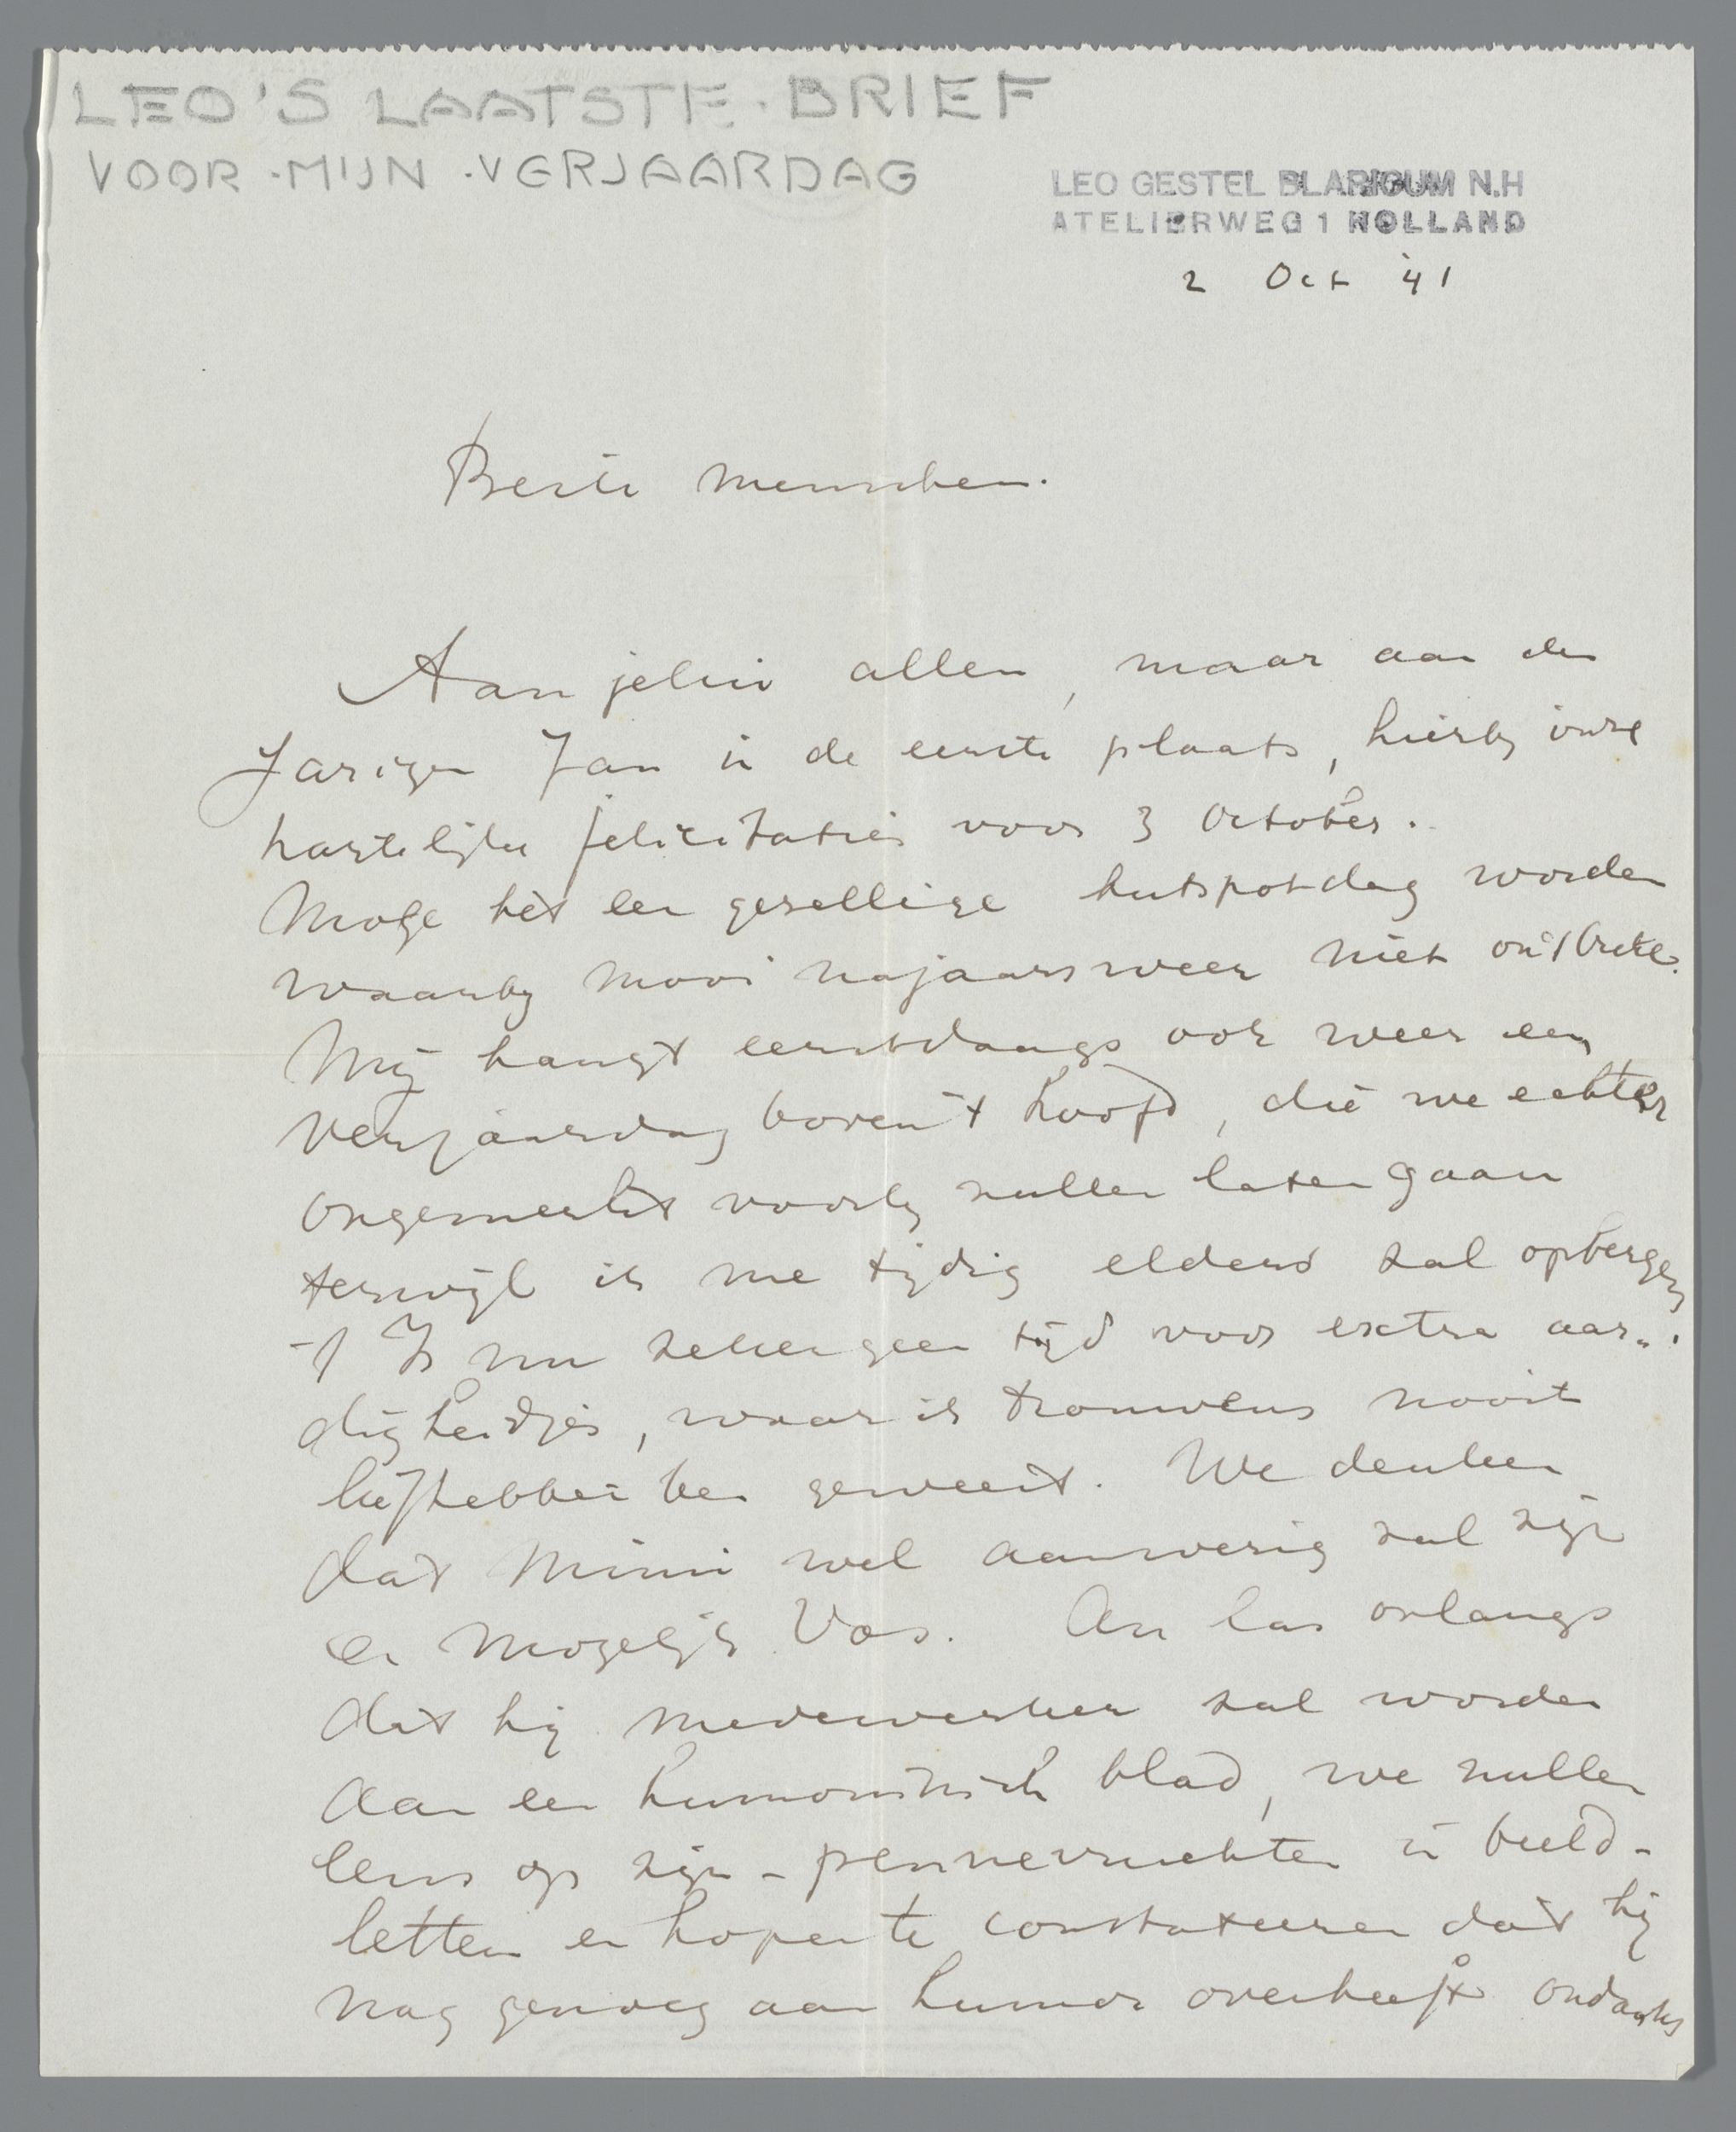 LEO'S LAATSTE · BRIEF
VOOR · MIJN · VERJAARDAG
LEO GESTEL BLARICUM N.H
ATELIERWEG 1 HOLLAND
2 Oct '41
Beste menschen.
Aan jelui allen, maar aan den
Jarigen Jan in de eerste plaats, hierbij onze
hartelijke felicitaties voor 3 October.
Moge het een gezellige hutspotdag worden
waarbij mooi najaarsweer niet ontbreke.
Mij hangt eerstdaags ook weer een
verjaardag boven 't hoofd, die we echter
ongemerkt voorbij zullen laten gaan
terwijl ik me tijdig elders zal opbergen
't Is nu zeker geen tijd voor extra aar-
digheidjes, waar ik trouwens nooit
liefhebber ben geweest. We denken
dat Mimi wel aanwezig zal zijn
en mogelijk Vos. An las onlangs
dat hij medewerker zal worden
aan een humoristisch blad, we zullen
eens op zijn - pennevruchten in beeld -
letten en hopen te constateeren dat hij
nog genoeg aan humor overheeft ondanks